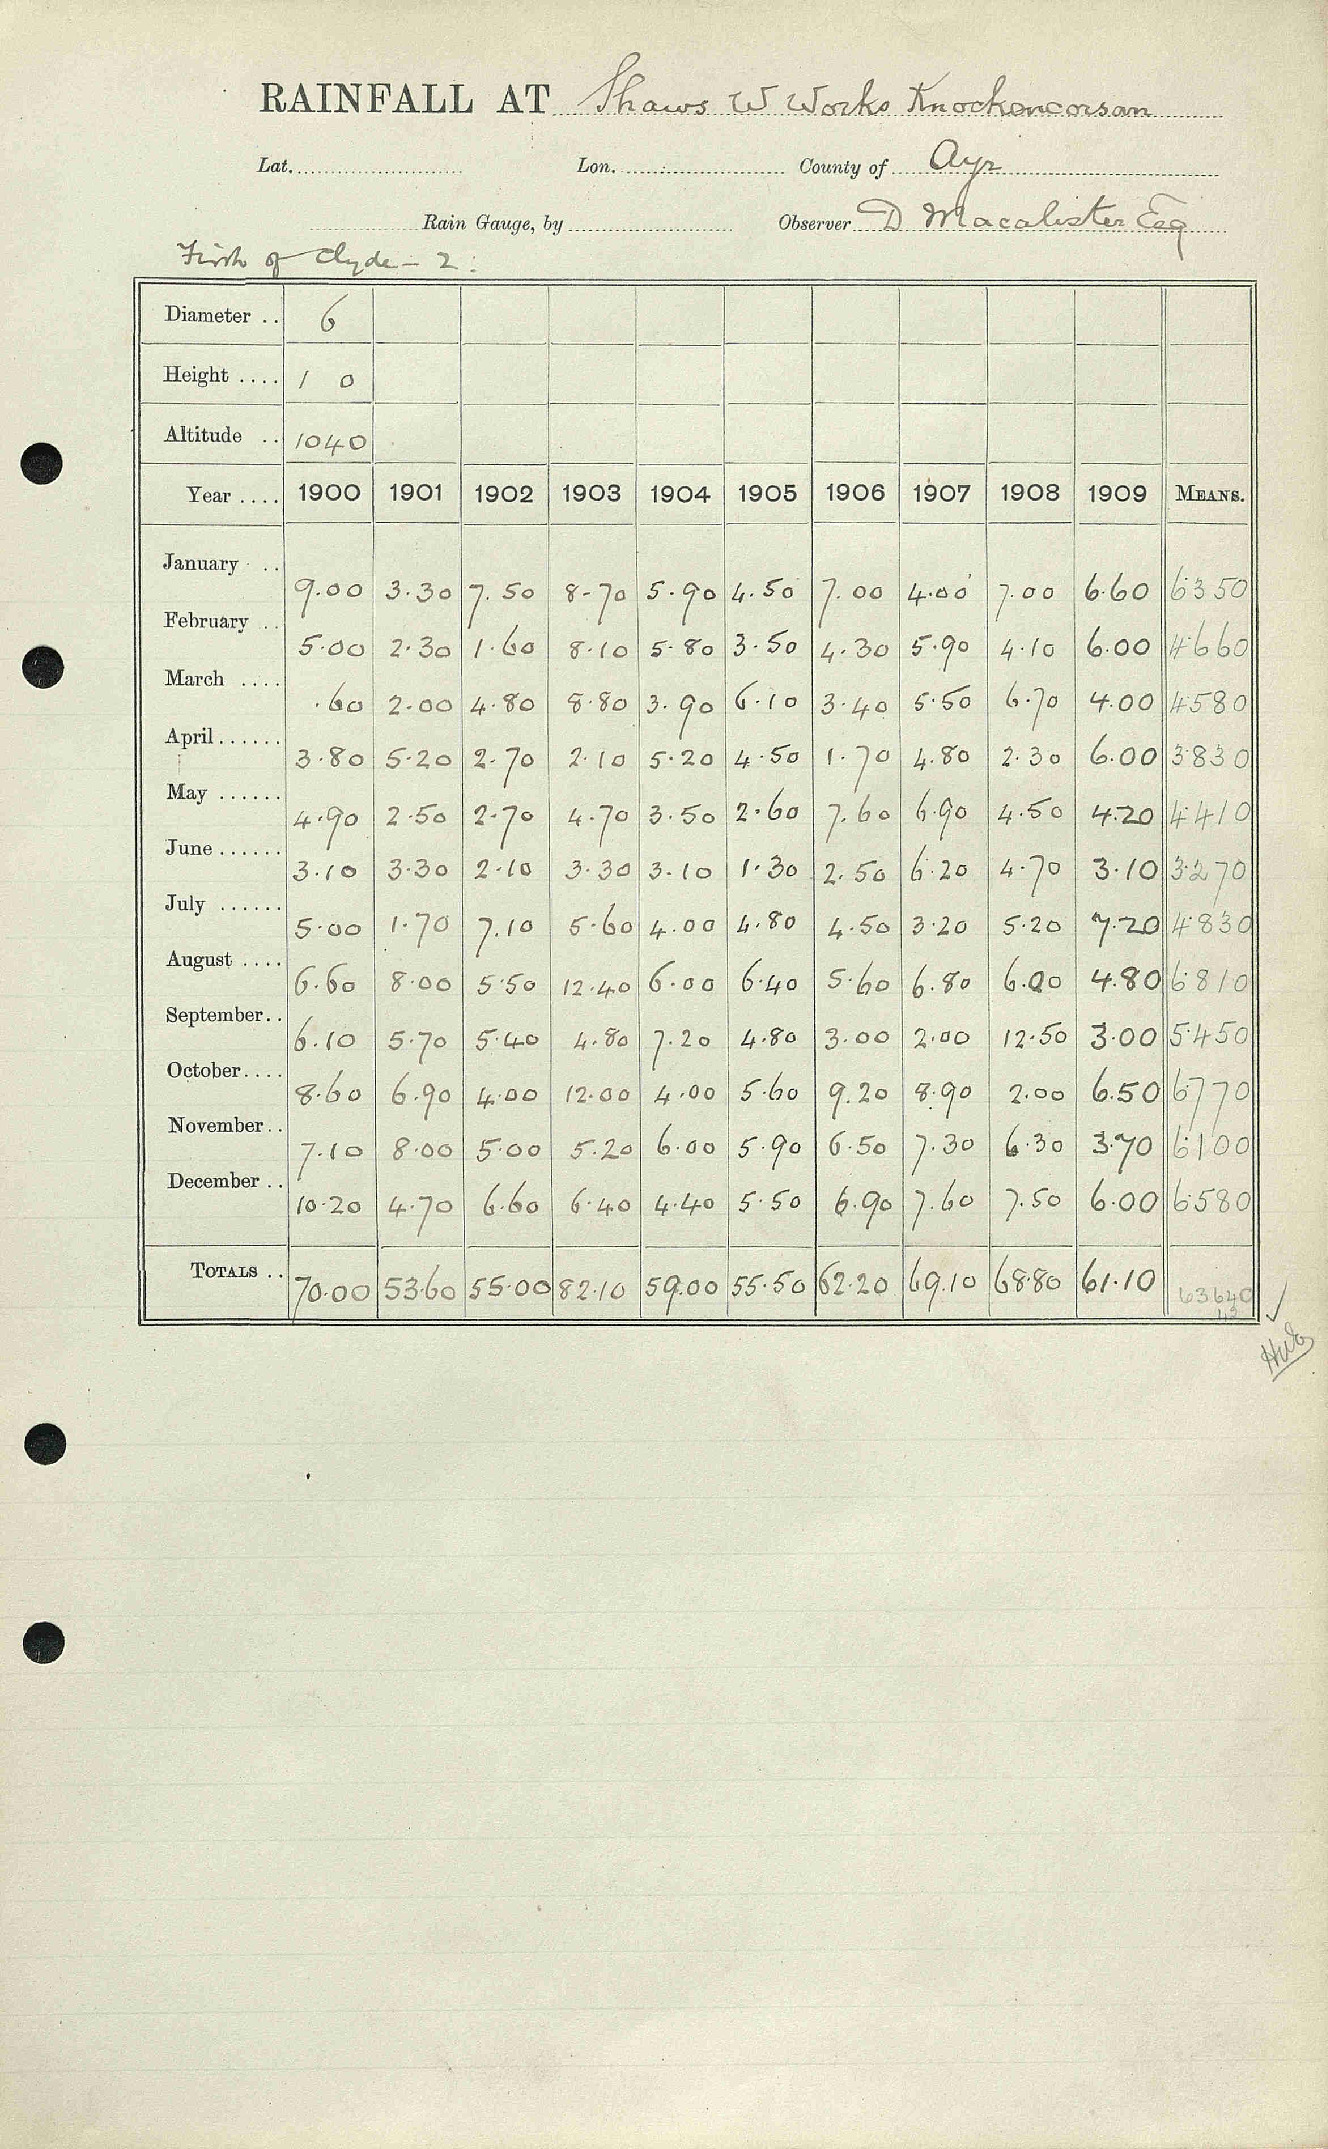 RAINFALL AT Shaws W Works Knockencorsan
Lat. Lon. County of Ayr
Rain Gauge, by Observer D Macalister Esq
Firth of Clyde - 2.
Diameter .. 6
Height .... 1 0
Altitude .. 1040
Year .... 1900 1901 1902 1903 1904 1905 1906 1907 1908 1909 MEANS.
January .. 9.00 3.30 7.50 8.70 5.90 4.50 7.00 4.00 7.00 6.60 6350
February .. 5.00 2.30 1.60 8.10 5.80 3.50 4.30 5.90 4.10 6.00 4660
March .... .60 2.00 4.80 8.80 3.90 6.10 3.40 5.50 6.70 4.00 4580
April...... 3.80 5.20 2.70 2.10 5.20 4.50 1.70 4.80 2.30 6.00 3830
May ...... 4.90 2.50 2.70 4.70 3.50 2.60 7.60 6.90 4.50 4.20 4410
June...... 3.10 3.30 2.10 3.30 3.10 1.30 2.50 6.20 4.70 3.10 3270
July ...... 5.00 1.70 7.10 5.60 4.00 4.80 4.50 3.20 5.20 7.20 4830
August .... 6.60 8.00 5.50 12.40 6.00 6.40 5.60 6.80 6.00 4.80 6810
September.. 6.10 5.70 5.40 4.80 7.20 4.80 3.00 2.00 12.50 3.00 5450
October.... 8.60 6.90 4.00 12.00 4.00 5.60 9.20 8.90 2.00 6.50 6770
November.. 7.10 8.00 5.00 5.20 6.00 5.90 6.50 7.30 6.30 3.70 6100
December .. 10.20 4.70 6.60 6.40 4.40 5.50 6.90 7.60 7.50 6.00 6580
TOTALS .. 70.00 53.60 55.00 82.10 59.00 55.50 62.20 69.10 68.80 61.10 63640